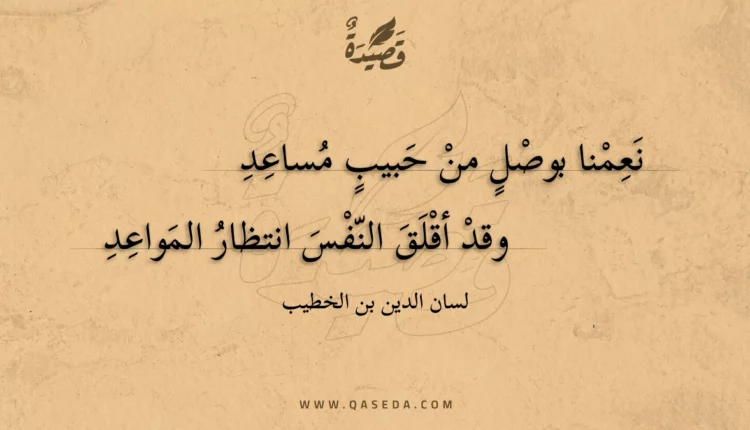 قَصِيدَةٌ
نَعِمْنا بوصْلٍ منْ حَبيبٍ مُساعِدِ
وقدْ أقْلَقَ النّفْسَ انتظارُ المَواعِدِ
لسان الدين بن الخطيب
WWW.QASEDA.COM